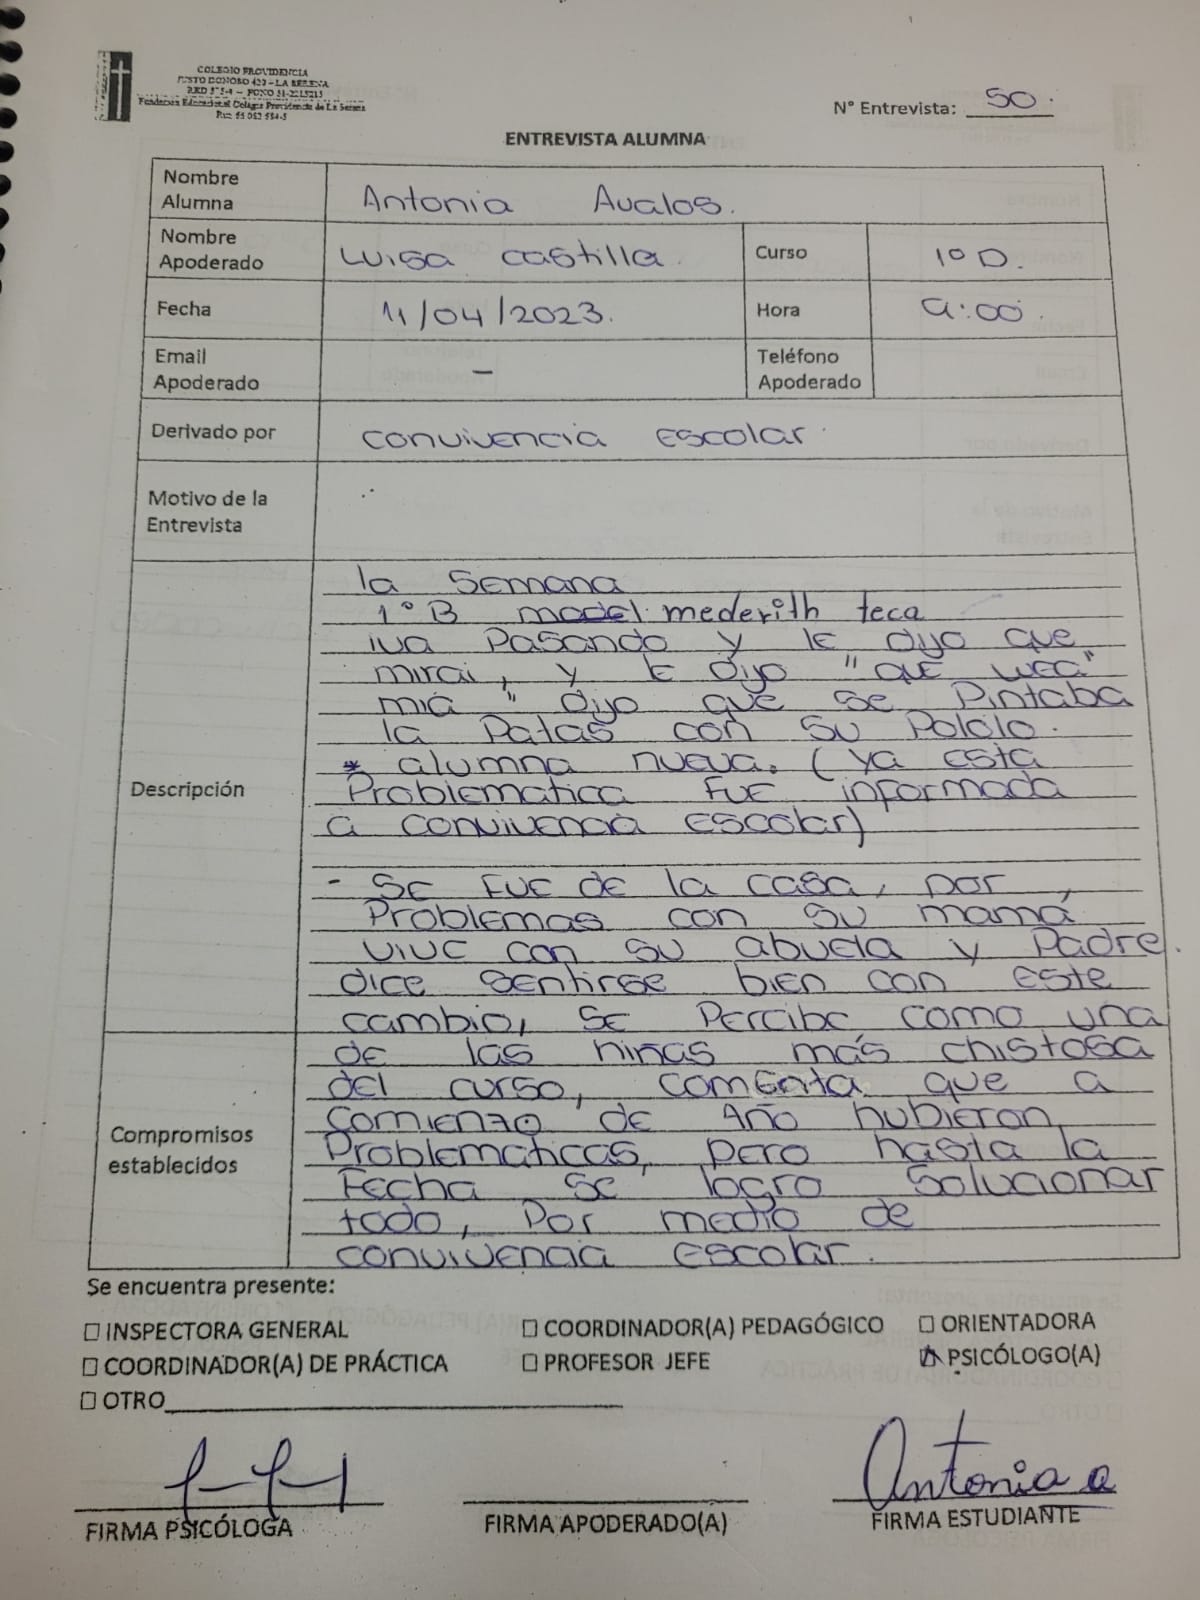 COLEGIO PROVIDENCIA
JUSTO DONOSO 420 - LA SERENA
Fundación Educacional Colegio Providencia de La Serena
N° Entrevista: 50.
ENTREVISTA ALUMNA
Nombre Alumna Antonia Avalos.
Nombre Apoderado Luisa castilla. Curso 1° D.
Fecha 11/04/2023. Hora 9:00.
Email Apoderado - Teléfono Apoderado
Derivado por convivencia Escolar.
Motivo de la Entrevista
Descripción
la semana
1° B mederith teca
iva Pasando y le dijo que
mirai, y le dijo "que wea"
mia" dijo que se Pintaba
la Patas con su Pololo.
* alumna nueva. (ya esta
Problematica fue informada
a convivencia Escolar)
- Se fue de la casa, por
Problemas con su mamá
vive con su abuela y Padre.
dice sentirse bien con este
cambio, se Percibe como una
Compromisos establecidos
de las niñas más chistosa
del curso, comenta que a
comienzo de Año hubieron
Problematicas, pero hasta la
Fecha se logro solucionar
todo, Por medio de
convivencia Escolar.
Se encuentra presente:
☐ INSPECTORA GENERAL ☐ COORDINADOR(A) PEDAGÓGICO ☐ ORIENTADORA
☐ COORDINADOR(A) DE PRÁCTICA ☐ PROFESOR JEFE ☒ PSICÓLOGO(A)
☐ OTRO
Antonia a
FIRMA PSICÓLOGA FIRMA APODERADO(A) FIRMA ESTUDIANTE